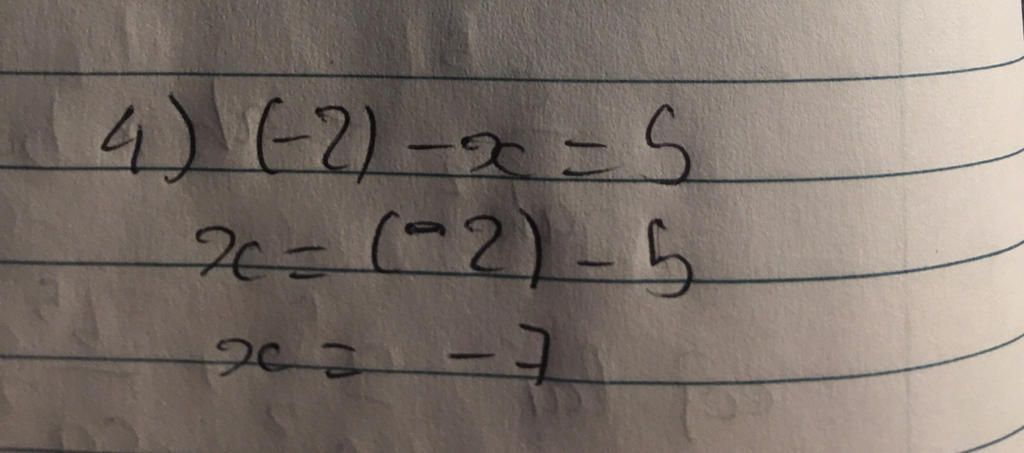 4) (-2) - x = 5
x = (-2) - 5
x = -7